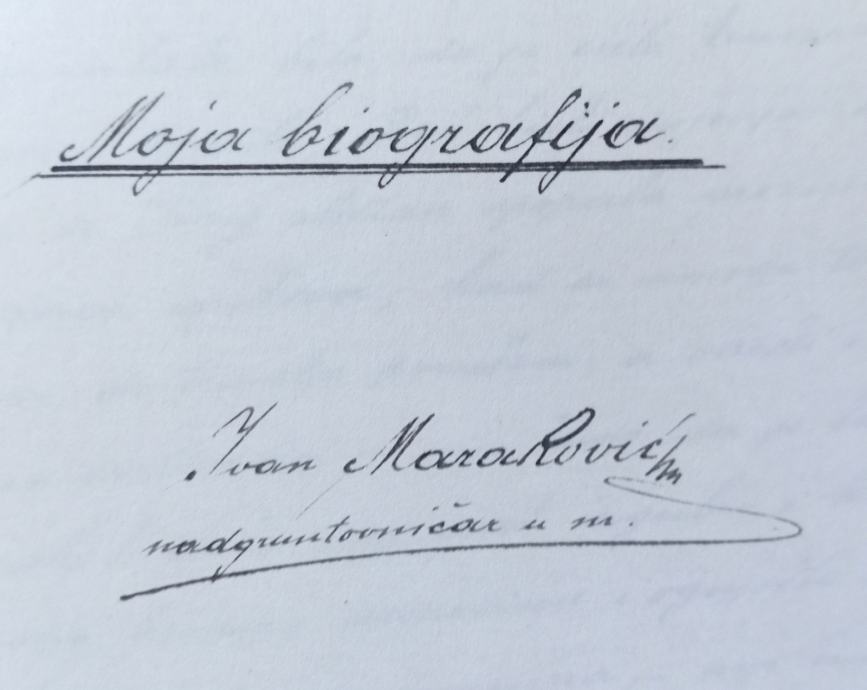 Moja biografija.
Ivan Maraković
nadgruntovničar u m.